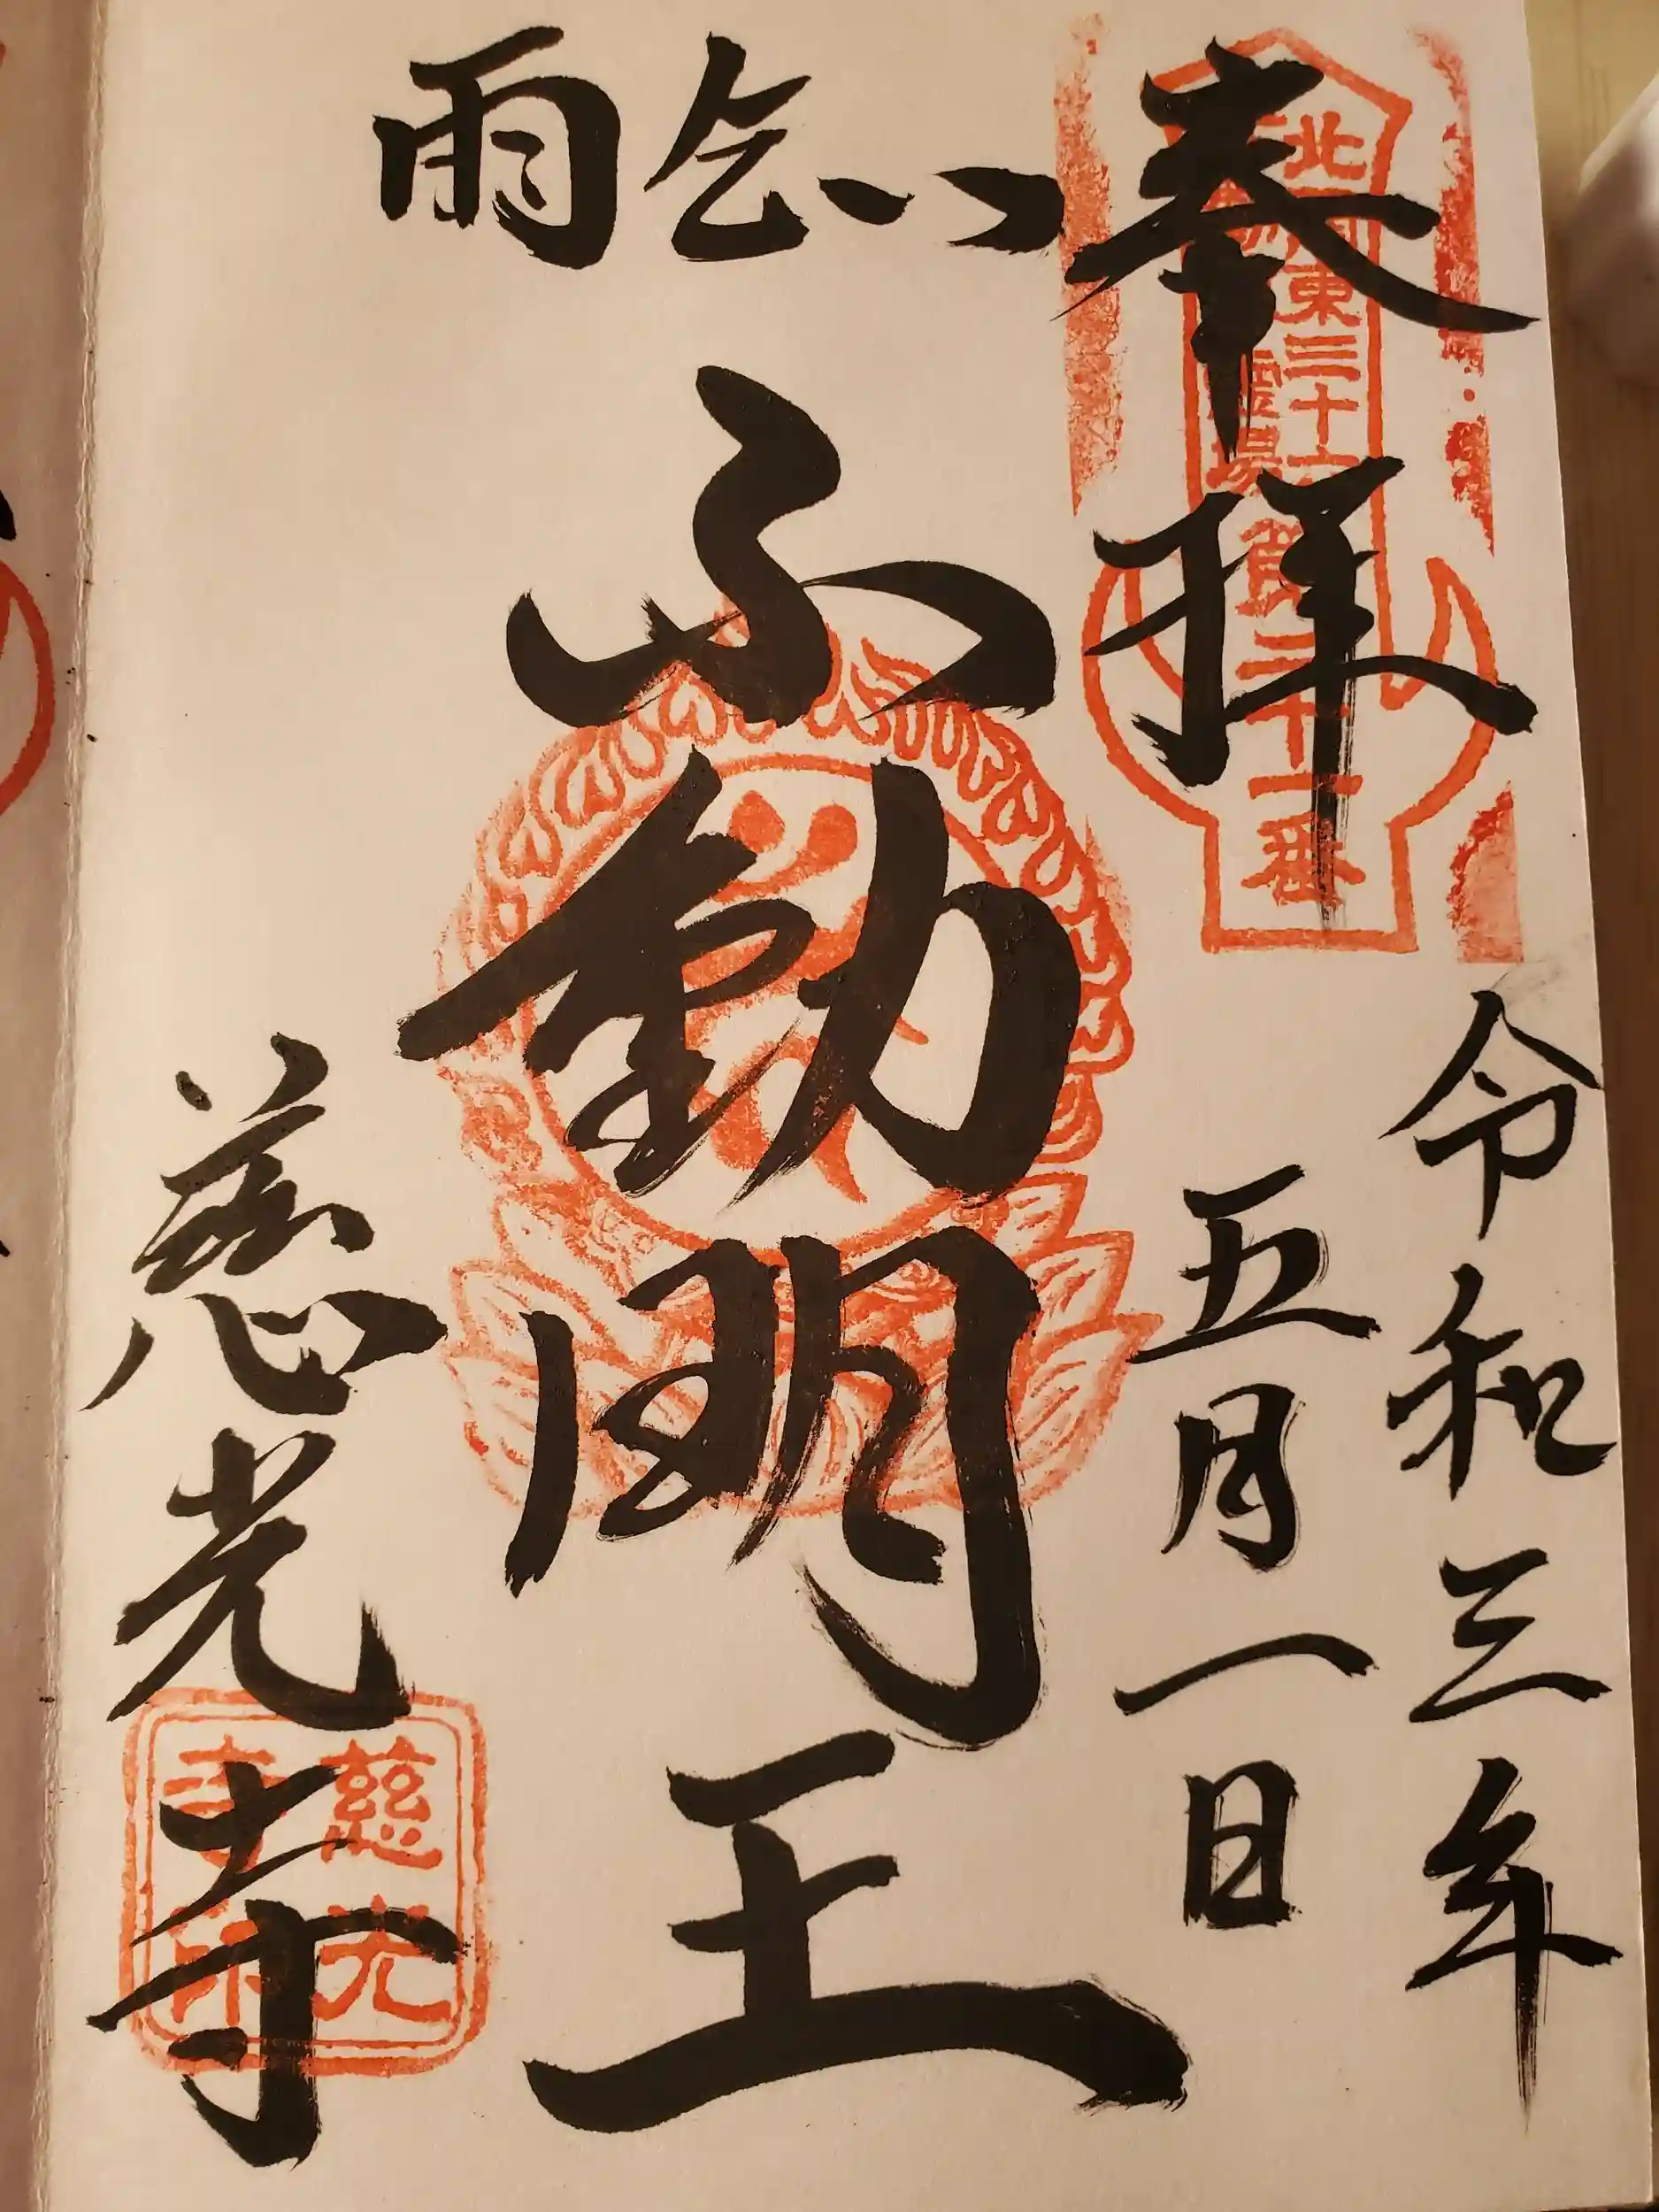 奉拝
北関東三十六
霊場
第二十一番
令和三年
五月一日
雨乞い
不動明王
慈光寺
慈光
寺印